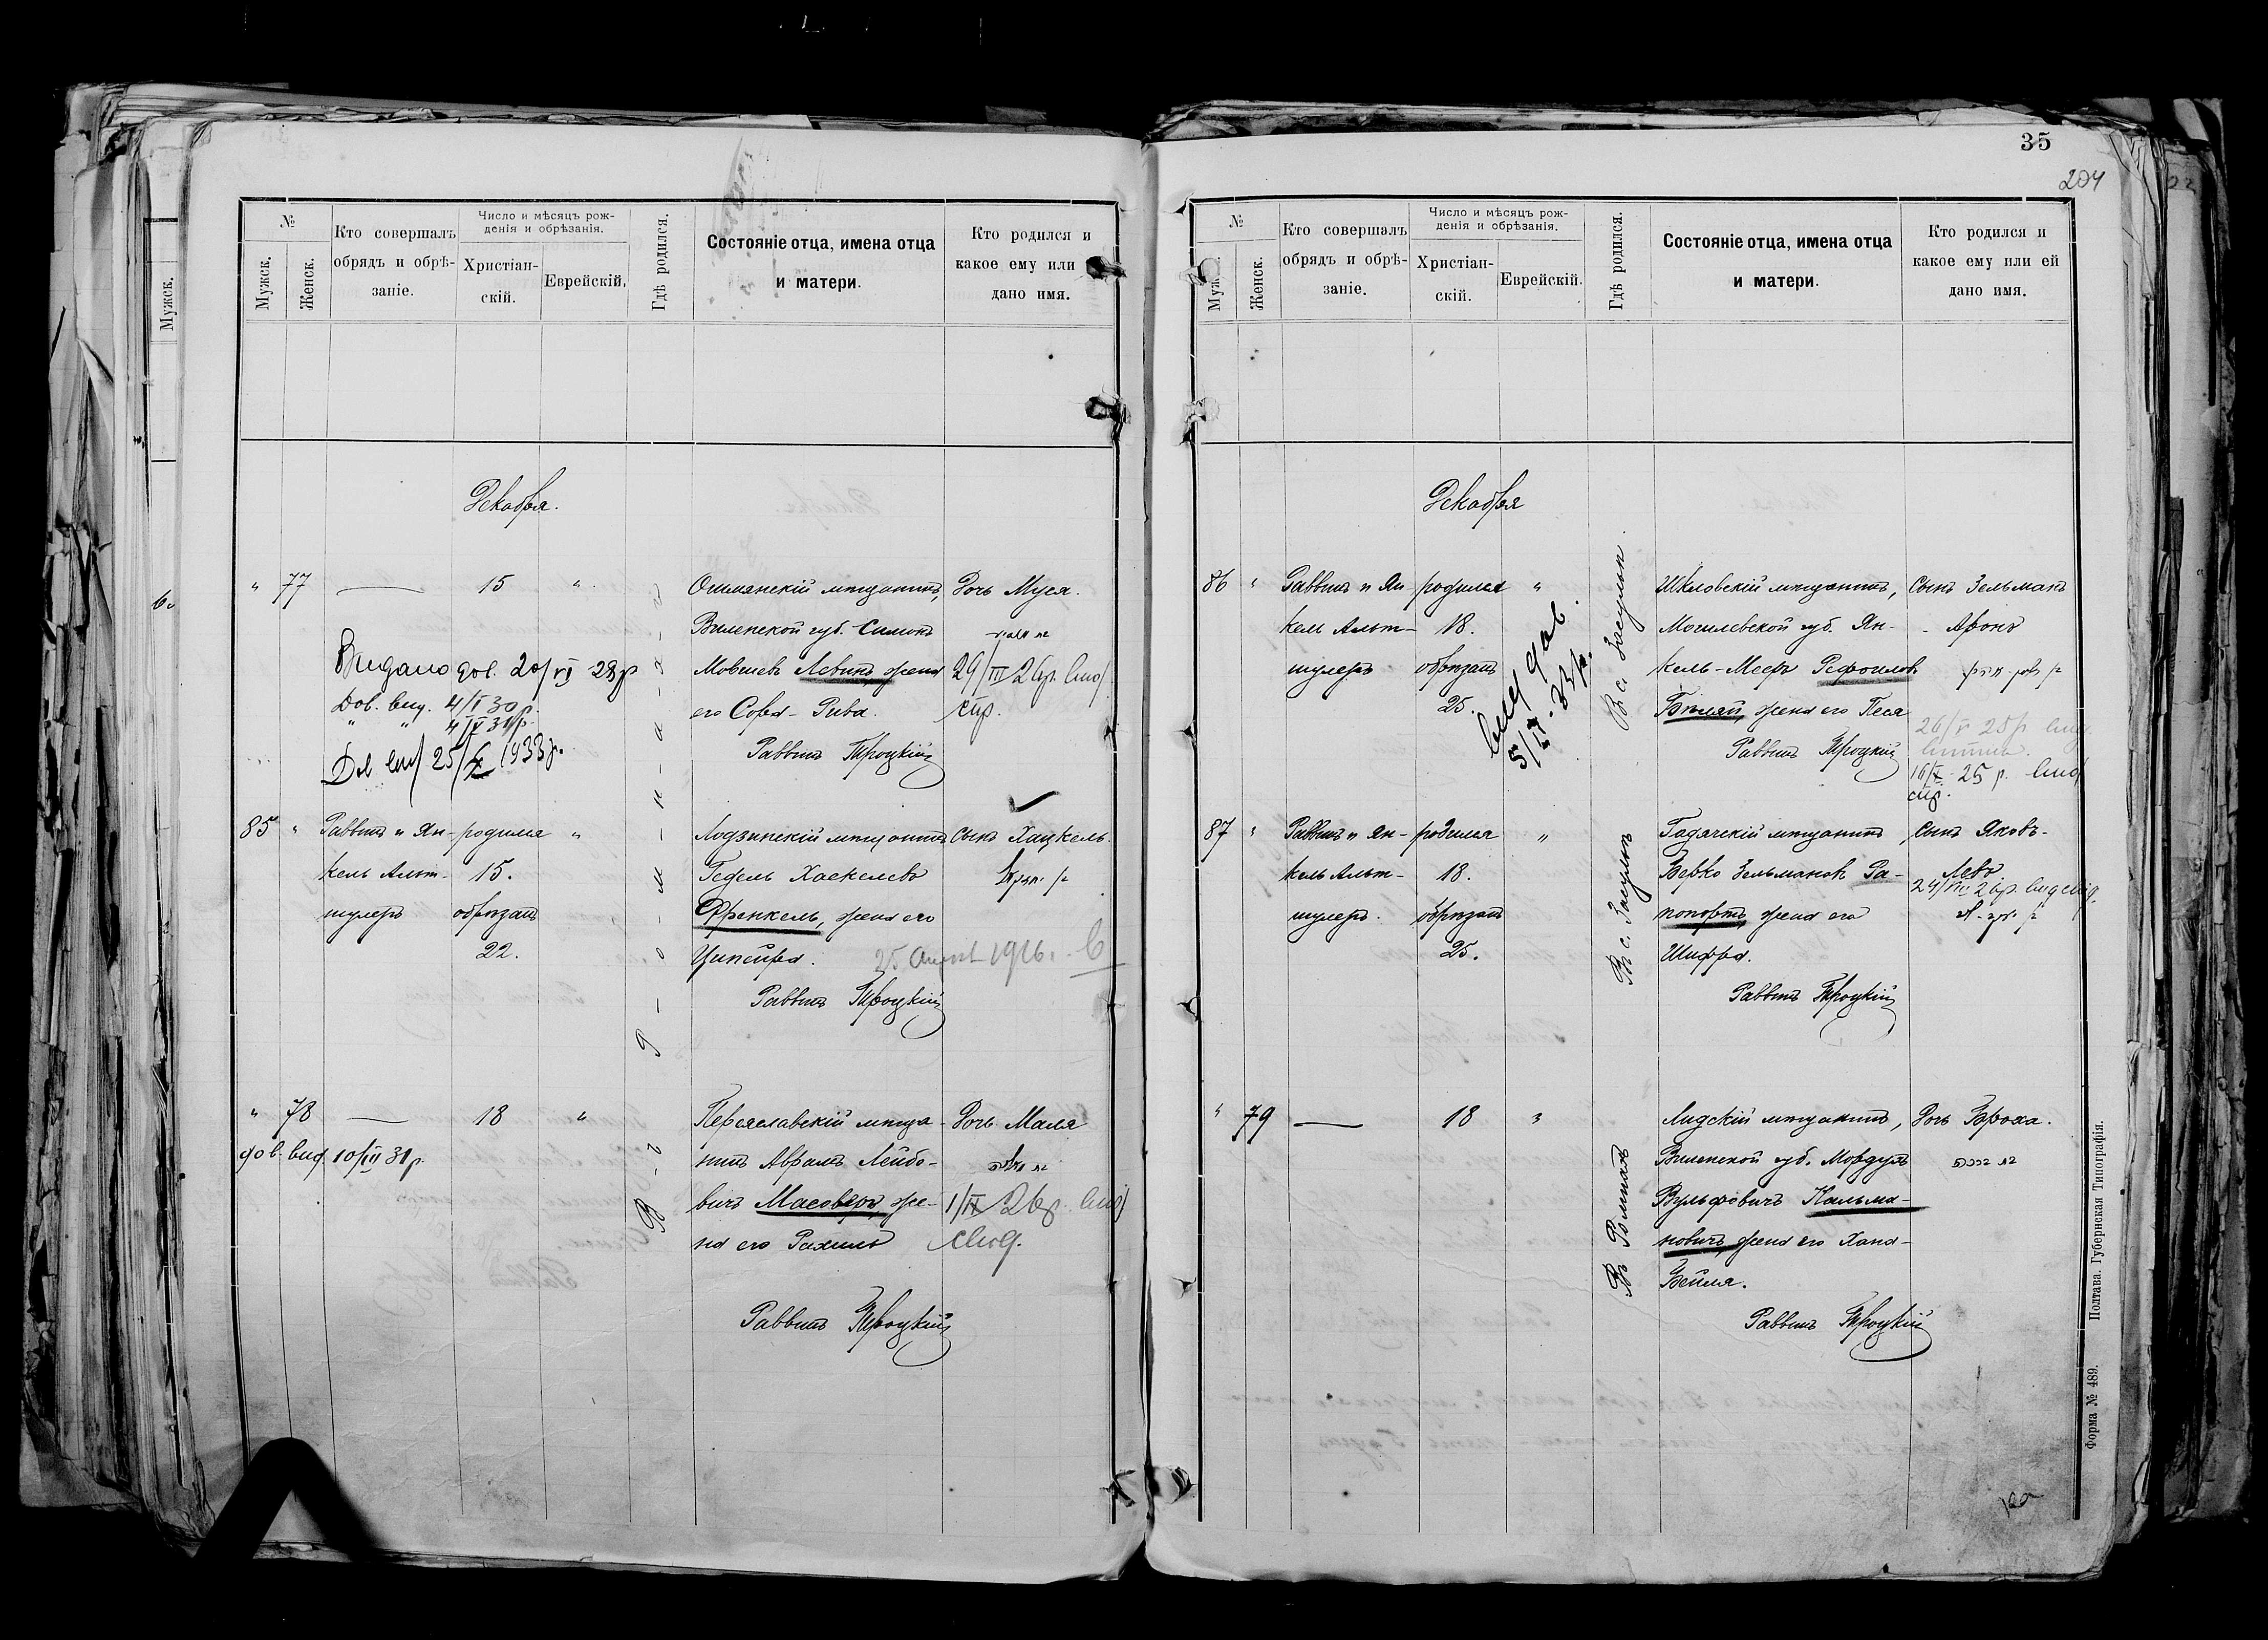 №
Мужск.
Женск.
Кто совершалъ
обрядъ и обрѣ-
заніе.
Число и мѣсяцъ рож-
денія и обрѣзанія.
Христіан-
скій.
Еврейскій.
Гдѣ родился.
Состояніе отца, имена отца
и матери.
Кто родился и
какое ему или
дано имя.
Мужск.
Декабря.
" 77 — 15 "
Ошмянскій мѣщанинъ,
Виленской губ. Симонъ
Мовшевъ Левинъ, жена
его Сора-Рива.
Раввинъ Троцкій
Дочь Муся.
29/III 26р. вид
стр.
Видано дов. 20/VI 28р
Дов. вид. 4/I 30р.
" " 4/IV 31р.
Дов вид 25/X 1933р.
85 "
Раввинъ и Ян-
кель Альт-
шулеръ
родился "
15.
обрѣзанъ
22.
Лодзинскій мѣщанинъ
Гедель Хаскелевъ
Френкель, жена его
Ципойра.
25 1916.
Раввинъ Троцкій
Сынъ Хацкель.
" 78 — 18 "
дов. вид. 10/III 31р.
Переяславскій мѣща-
нинъ Аврамъ Лейбо-
вичъ Масоверъ, же-
на его Рахиль
Раввинъ Троцкій
Дочь Маля
1/IV 26р. вид
свід.
В-ъ Р-о-м-н-а-х-ъ
35
204
№
Женск.
Кто совершалъ
обрядъ и обрѣ-
заніе.
Число и мѣсяцъ рож-
денія и обрѣзанія.
Христіан-
скій.
Еврейскій.
Гдѣ родился.
Состояніе отца, имена отца
и матери.
Кто родился и
какое ему или ей
дано имя.
Декабря
86 "
Раввинъ и Ян-
кель Альт-
шулеръ
родился "
18.
обрѣзанъ
25.
вид дов.
Въ с. Засульи.
Шкловскій мѣщанинъ,
Могилевской губ. Ян-
кель-Меєръ Рефоиловъ
Бѣляй, жена его Песя
Раввинъ Троцкій
Сынъ Зельманъ
- Аронъ
26/V 25р вид.
16/X 25 р. вид
стр.
87 "
Раввинъ и Ян-
кель Альт-
шулеръ.
родился "
18.
обрѣзанъ
25.
Въ с. Засульѣ
Гадячскій мѣщанинъ,
Берко Зельмановъ Ра-
попортъ, жена его
Шифра.
Раввинъ Троцкій
Сынъ Яковъ-
Левъ.
" 79 — 18 "
Въ Ромнахъ
Лидскій мѣщанинъ,
Виленской губ. Мордухъ
Вульфовичъ Кальма-
новичъ, жена его Хана-
Бейля.
Раввинъ Троцкій
Дочь Броха.
Полтава. Губернская Типографія.
Форма № 489.